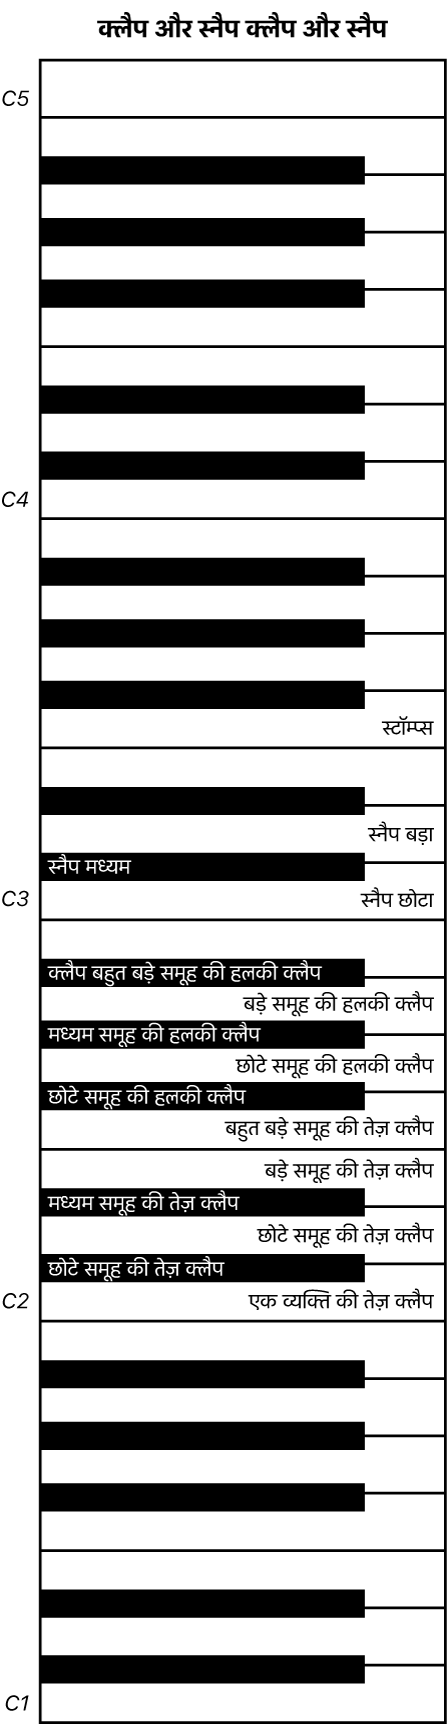 क्लैप और स्नैप क्लैप और स्नैप
C5
C4
स्टॉम्प्स
स्नैप बड़ा
स्नैप मध्यम
C3
स्नैप छोटा
क्लैप बहुत बड़े समूह की हलकी क्लैप
बड़े समूह की हलकी क्लैप
मध्यम समूह की हलकी क्लैप
छोटे समूह की हलकी क्लैप
छोटे समूह की हलकी क्लैप
बहुत बड़े समूह की तेज़ क्लैप
बड़े समूह की तेज़ क्लैप
मध्यम समूह की तेज़ क्लैप
छोटे समूह की तेज़ क्लैप
छोटे समूह की तेज़ क्लैप
C2
एक व्यक्ति की तेज़ क्लैप
C1